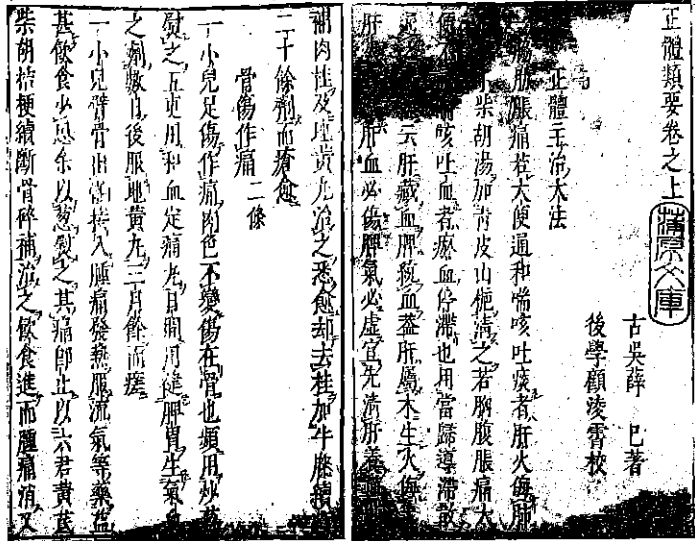 正體類要卷之上
蒲原文庫
古吳薛 已著
後學顧淩霄校
正體主治大法
脇肋脹痛若大便通和喘咳吐痰者肝火侮肺
柴胡湯加青皮山梔清之若胸腹脹痛大
便不 喘咳吐血者瘀血停滯也用當歸導滯散
云肝藏血脾統血蓋肝屬木生火侮
肝 肝血必傷脾氣必虛宜先清肝養
補肉桂及地黃丸治之悉愈却去桂加牛膝續
二十餘劑而瘡愈
骨傷作痛 二條
一小兒足傷作痛肉色不變傷在骨也頻用炒葱
熨之五更用和血定痛丸日間用健脾胃生氣
之劑數日後服地黃丸三月餘而瘥
一小兒臂骨出臼接入腫痛發熱服流氣等藥益
甚飲食少思余以葱熨之其痛即止以六君黃芪
柴胡桔梗續斷骨碎補治之飲食進而腫痛消又